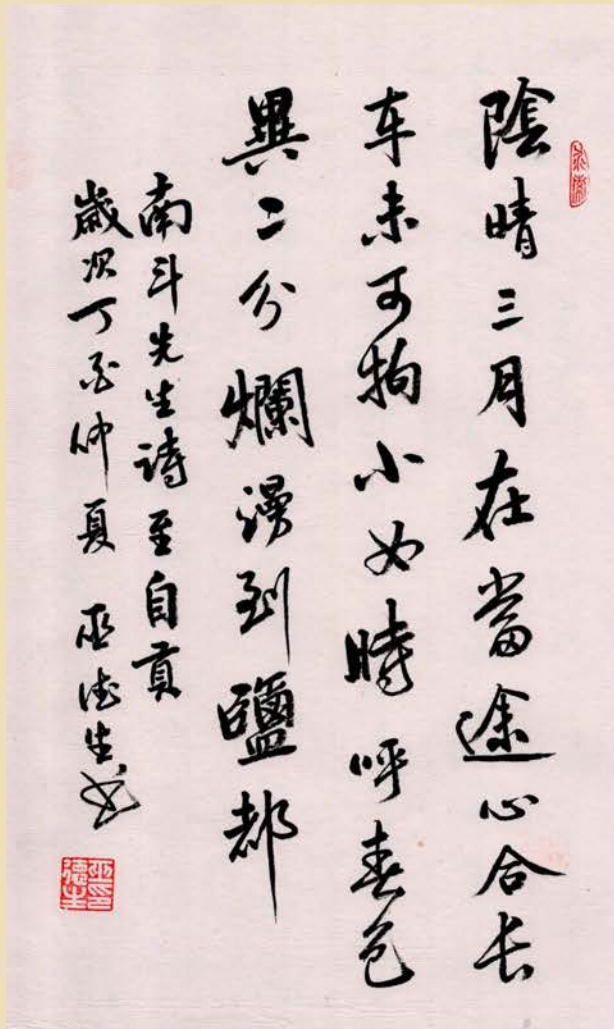 陰晴三月在當途心合长
车未可拘小女時呼春色
異二分爛漫到鹽都
南斗先生詩至自貢
歲次丁酉仲夏 巫德生书
巫印德生